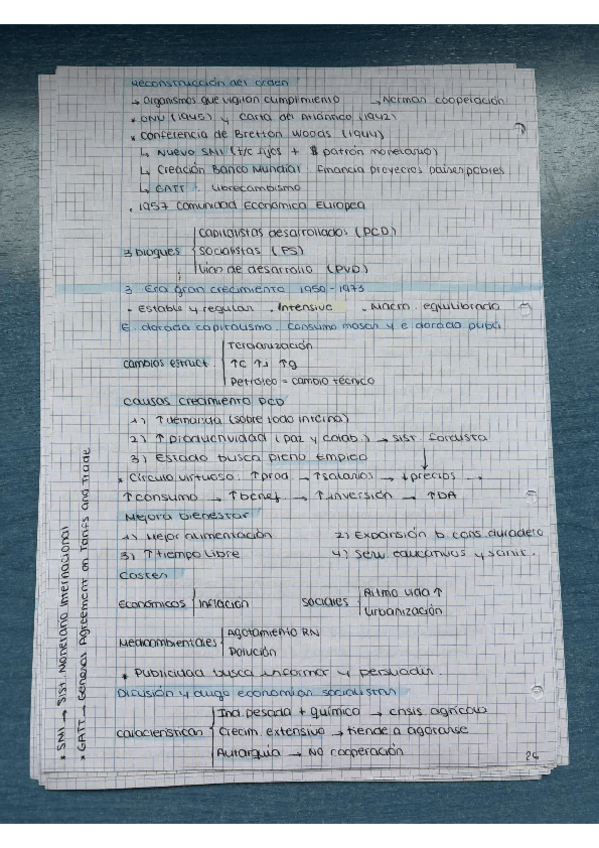 Reconstrucción del orden
→ Organismos que vigilan cumplimiento → Normas cooperación
* ONU (1945) y Carta del Atlántico (1942)
* Conferencia de Bretton Woods (1944)
↳ Nuevo SMI (t/c fijos + $ patrón monetario)
↳ Creación Banco Mundial. Financia proyectos países pobres
↳ GATT: Librecambismo
. 1957 Comunidad Económica Europea
3 bloques
Capitalistas desarrollados (PCD)
Socialistas (PS)
Vías de desarrollo (PVD)
3. Era gran crecimiento 1950-1973
· Estable y regular . Intensivo . Macro. equilibrada
E. dorada capitalismo. Consumo masas y e dorada públ.
cambios estruct
Terciarización
↑C ↑I ↑G
Petróleo = cambio técnico
Causas crecimiento PCD
1) ↑demanda (sobre todo interna)
2) ↑productividad (paz y colab.) → sist. fordista
3) Estado busca pleno empleo
* Círculo virtuoso. ↑prod → ↑salarios → ↓precios →
↑consumo → ↑benef → ↑inversión → ↑DA
Mejora bienestar
1) Mejor alimentación 2) Expansión b. cons. duradero
3) ↑tiempo libre 4) Serv. educativos y sanit.
Costes
Económicos | Inflación sociales
Ritmo vida ↑
Urbanización
Medioambientales
Agotamiento RN
Polución
* Publicidad busca informar y persuadir.
Difusión y auge economías socialistas
características
Ind. pesada + química → crisis agrícola
Crecim. extensivo → tiende a agotarse
Autarquía → No cooperación
26
* SMI → Sist. Monetario Internacional
* GATT → General Agreement on Tarifs and Trade